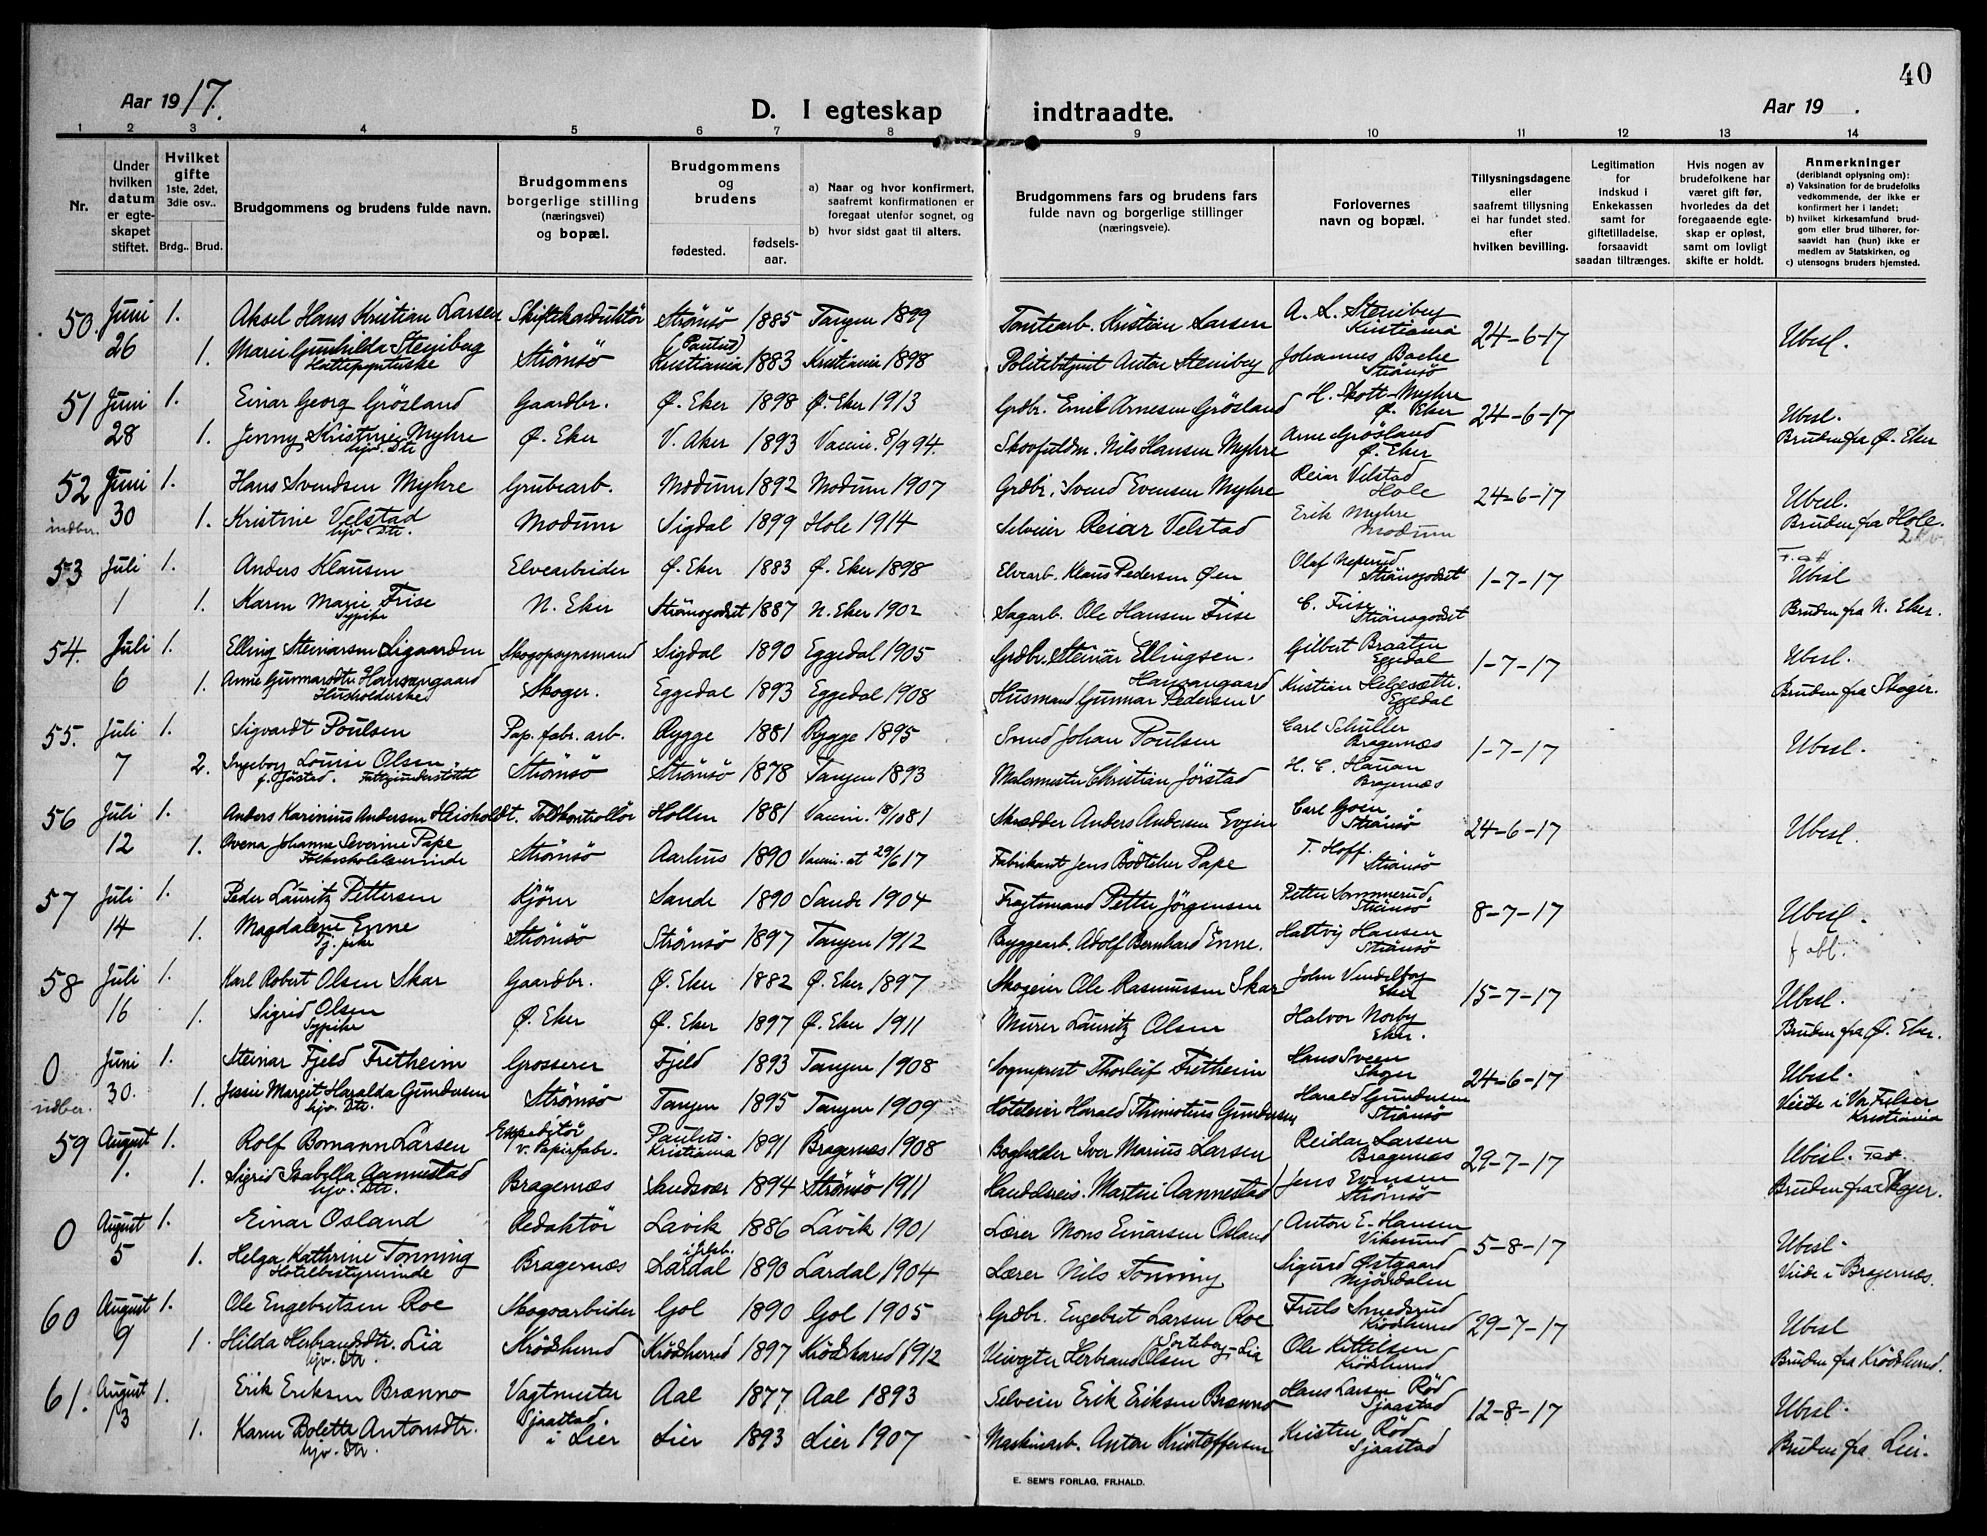 40
Aar 1917.
D. I egteskap indtraadte.
Aar 19 .
1 2 3 4 5 6 7 8 9 10 11 12 13 14
Nr.
Under hvilken datum er egteskapet stiftet.
Hvilket gifte 1ste, 2det, 3die osv..
Brdg.. Brud.
Brudgommens og brudens fulde navn.
Brudgommens borgerlige stilling (næringsvei) og bopæl.
Brudgommens og brudens
fødested. fødselsaar.
a) Naar og hvor konfirmert, saafremt konfirmationen er foregaat utenfor sognet, og
b) hvor sidst gaat til alters.
Brudgommens fars og brudens fars fulde navn og borgerlige stillinger (næringsveie).
Forlovernes navn og bopæl.
Tillysningsdagene eller saafremt tillysning ei har fundet sted. efter hvilken bevilling.
Legitimation for indskud i Enkekassen samt for giftetilladelse, forsaavidt saadan tiltrænges.
Hvis nogen av brudefolkene har været gift før, hvorledes da det foregaaende egteskap er opløst, samt om lovligt skifte er holdt.
Anmerkninger (deriblandt oplysning om):
a) Vaksination for de brudefolks vedkommende, der ikke er konfirmert her i landet;
b) hvilket kirkesamfund brudgom eller brud tilhører, forsaavidt han (hun) ikke er medlem av Statskirken, og
c) utensogns bruders hjemsted.
50. Juni 1. Aksel Hans Kristian Larsen Skiftekonduktør Strømsø 1885 Tangen 1899 Tomtearb. Kristian Larsen A. L. Steniberg Kristiania 24-6-17 Ubesl.
26 1. Marie Gunhilda Steniberg Strømsø (Paulus) Kristiania 1883 Kristiania 1898 Politibetjent Anton Steniberg Johannes Bache Strømsø
51 Juni 1. Einar Georg Grösland Gaardbr. Ø. Eker 1898 Ø. Eker 1913 Grdbr. Emil Arnesen Grösland H. Skott-Myhre Ø. Eker 24-6-17 Ubesl.
28 1. Jenny Kristine Myhre hjv. Dtr Ø. Eker V. Aker 1893 Vaccin. 8/9 94. Skogfuldm. Nils Hansen Myhre Arne Grösland Ø. Eker Bruden fra Ø. Eker
52 Juni 1. Hans Svendsen Myhre Grubearb. Modum 1892 Modum 1907 Grdbr. Svend Evensen Myhre Reiar Velstad Hole 24-6-17 Ubesl.
indber. 30 1. Kristine Velstad hjv. Dtr. Modum Sigdal 1899 Hole 1914 Selveier Reiar Velstad Erik Myhre Modum Bruden fra Hole.
53 Juli 1. Anders Klausen Elvearbeider Ø. Eker 1883 Ø. Eker 1898 Elvearb. Klaus Pedersen Øen Olaf Neperud Strømsgodset 1-7-17 Ubesl
1 1. Karen Marie Frise Sypike N. Eker Strømsgodset 1887 N. Eker 1902 Sagarb. Ole Hansen Frise C. Frise Strømsgodset Bruden fra N. Eker.
54. Juli 1. Elling Steinarsen Ligaarden Skogopsynsmand Sigdal 1890 Eggedal 1905 Grdbr. Steinar Ellingsen. Gilbert Braaten Eggedal 1-7-17 Ubesl.
6 1. Anne Gunnarsdtr Hansangaard Husholderske Skoger. Eggedal 1893 Eggedal 1908 Husmand Gunnar Pedersen Hansangaard Kristian Helgesætr. Eggedal Bruden fra Skoger.
55. Juli 1. Sigvardt Poulsen Pap. fabr. arb. Rygge 1881 Rygge 1895 Smed Johan Poulsen Carl Schuller Bragernæs 1-7-17 Ubesl.
7 2. Ingeborg Louise Olsen f. Jörstad. Fattigunderstøttet Strømsø Strømsø 1878 Tangen 1893 Malermester Christian Jörstad H. C. Hauan Bragernæs
56 Juli 1. Anders Karinius Andersen Heisholdt. Toldkontrollör Hollen 1881 Vaccin. 18/10 81 Skrædder Anders Andersen Evjen Carl Goen Strømsø 24-6-17 Ubesl.
12 1. Ovena Johanne Severine Pape Folkeskolelærerinde Strømsø Aarhus 1890 Vaccin. at 29/6 17 Fabrikant Jens Bödtcher Pape T. Hoff. Strømsø
57 Juli 1. Peder Lauritz Pettersen Kjörer Sande 1890 Sande 1904 Fragtemand Petter Jörgensen Petter Sommerud, Strømsø 8-7-17 Ubesl.
14 1. Magdalene Enne Tj. pike Strømsø Strømsø 1897 Tangen 1912 Byggearb. Adolf Bernhard Enne. Hattvig Hansen Strømsø
58 Juli 1. Karl Robert Olsen Skar Gaardbr. Ø. Eker 1882 Ø. Eker 1897 Skogeier Ole Rasmussen Skar John Vendelborg Eker 15-7-17 Ubesl.
16 1. Sigrid Olsen Sypike Ø. Eker Ø. Eker 1897 Ø. Eker 1911 Murer Lauritz Olsen Halvor Norby Eker. Bruden fra Ø. Eker.
0 Juni 1. Steinar Fjeld Fretheim Grosserer Fjeld 1893 Tangen 1908 Sogneprest Thorleif Fretheim Hans Sveen Skoger 24-6-17 Ubesl.
indber. 30. 1. Jessie Margit Haralda Gundersen hjv. Dtr. Strømsø Tangen 1895 Tangen 1909 Hoteleier Harald Thimotius Gundersen Harald Gundersen Strømsø Viede i Vor Frelser Kristiania
59 August 1. Rolf Bomann Larsen Expeditør v. Papirfabr. Paulus. Kristiania 1891 Bragernæs 1908 Bogholder Iver Marius Larsen Reidar Larsen Bragernæs 29-7-17 Ubesl.
1. 1. Sigrid Isabella Aannestad hjv. Dtr. Bragernæs Sandsvær 1894 Strømsø 1911 Handelsreis. Martin Aannestad Jens Evensen Strømsø Bruden fra Skoger.
0 August 1. Einar Osland Redaktør Lavik 1886 Lavik 1901 Lærer Mons Einarsen Osland Anton E. Hansen Vikesund 5-8-17 Ubesl.
5 1. Helga Kathrine Tonning Hotelbestyrerinde Bragernæs Lardal i Jrlsb. 1890 Lardal 1904 Lærer Nils Tonning Sigurd Østgaard Mjöndalen Viede i Bragernæs.
60 August 1. Ole Engebretsen Roe Skogsarbeider Gol 1890 Gol 1905 Grdbr. Engebret Larsen Roe Truls Smedsrud Krödsherred 29-7-17 Ubesl
9 1. Hilda Herbrandsdtr. Lia hjv. Dtr. Krödsherred Krödsherred 1897 Krödsherred 1912 Veivogter Herbrand Olsen Sorteberg-Lia Ole Kittilsen Krödsherred Bruden fra Krödsherred.
61. August 1. Erik Eriksen Brænno Vagtmester Aal 1877. Aal 1893 Selveier Erik Eriksen Brænno Hans Larsen Röd Sjaastad 12-8-17 Ubesl.
13 1. Karen Bolette Antonsdtr. hjv. Dtr Sjaastad. i Lier Lier 1893 Lier 1907 Maskinarb. Anton Kristoffersen Kristen Röd Sjaastad Bruden fra Lier.
E. SEM'S FORLAG, FR.HALD.